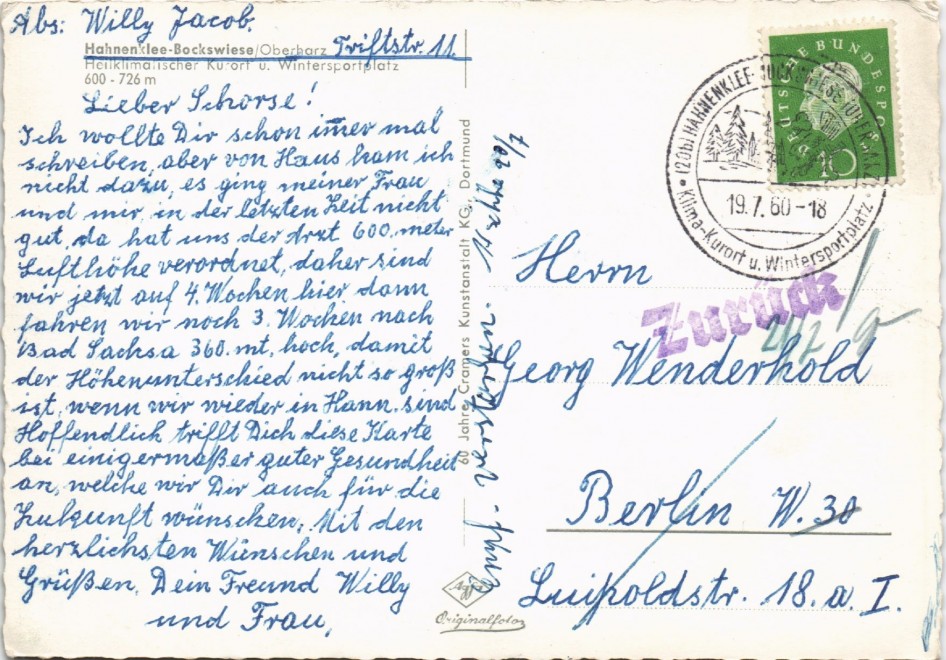 Abs: Willy Jacob.
Hahnenklee-Bockswiese/Oberharz Triftstr. 11
Heilklimatischer Kurort u. Wintersportplatz
600 - 726 m
Lieber Schorse!
Ich wollte Dir schon imer mal
schreiben, aber von Haus kam ich
nicht dazu, es ging meiner Frau
und mir, in der letzten Zeit nicht
gut, da hat uns der Arzt 600. meter
Lufthöhe verordnet, daher sind
wir jetzt auf 4. Wochen hier, dann
fahren wir noch 3. Wochen nach
Bad Sachsa 360. mt. hoch, damit
der Höhenunterschied nicht so groß
ist, wenn wir wieder in Hann. sind
Hoffendlich trifft Dich diese Karte
bei einigermaßer guter Gesundheit
an, welche wir Dir auch für die
Zukunft wünschen, Mit den
herzlichsten Wünschen und
Grüßen, Dein Freund Willy
und Frau,
60 Jahre Cramers Kunstanstalt KG., Dortmund
Empf. verstorben.
20/7
Agfa
Originalfoto
DEUTSCHE BUNDESPOST
10
(20b) HAHNENKLEE-BOCKSWIESE (OBERHARZ)
19.7.60-18
Klima-Kurort u. Wintersportplatz
Zurück
Herrn
Georg Wenderhold
Berlin W. 30
Luipoldstr. 18. a. I.